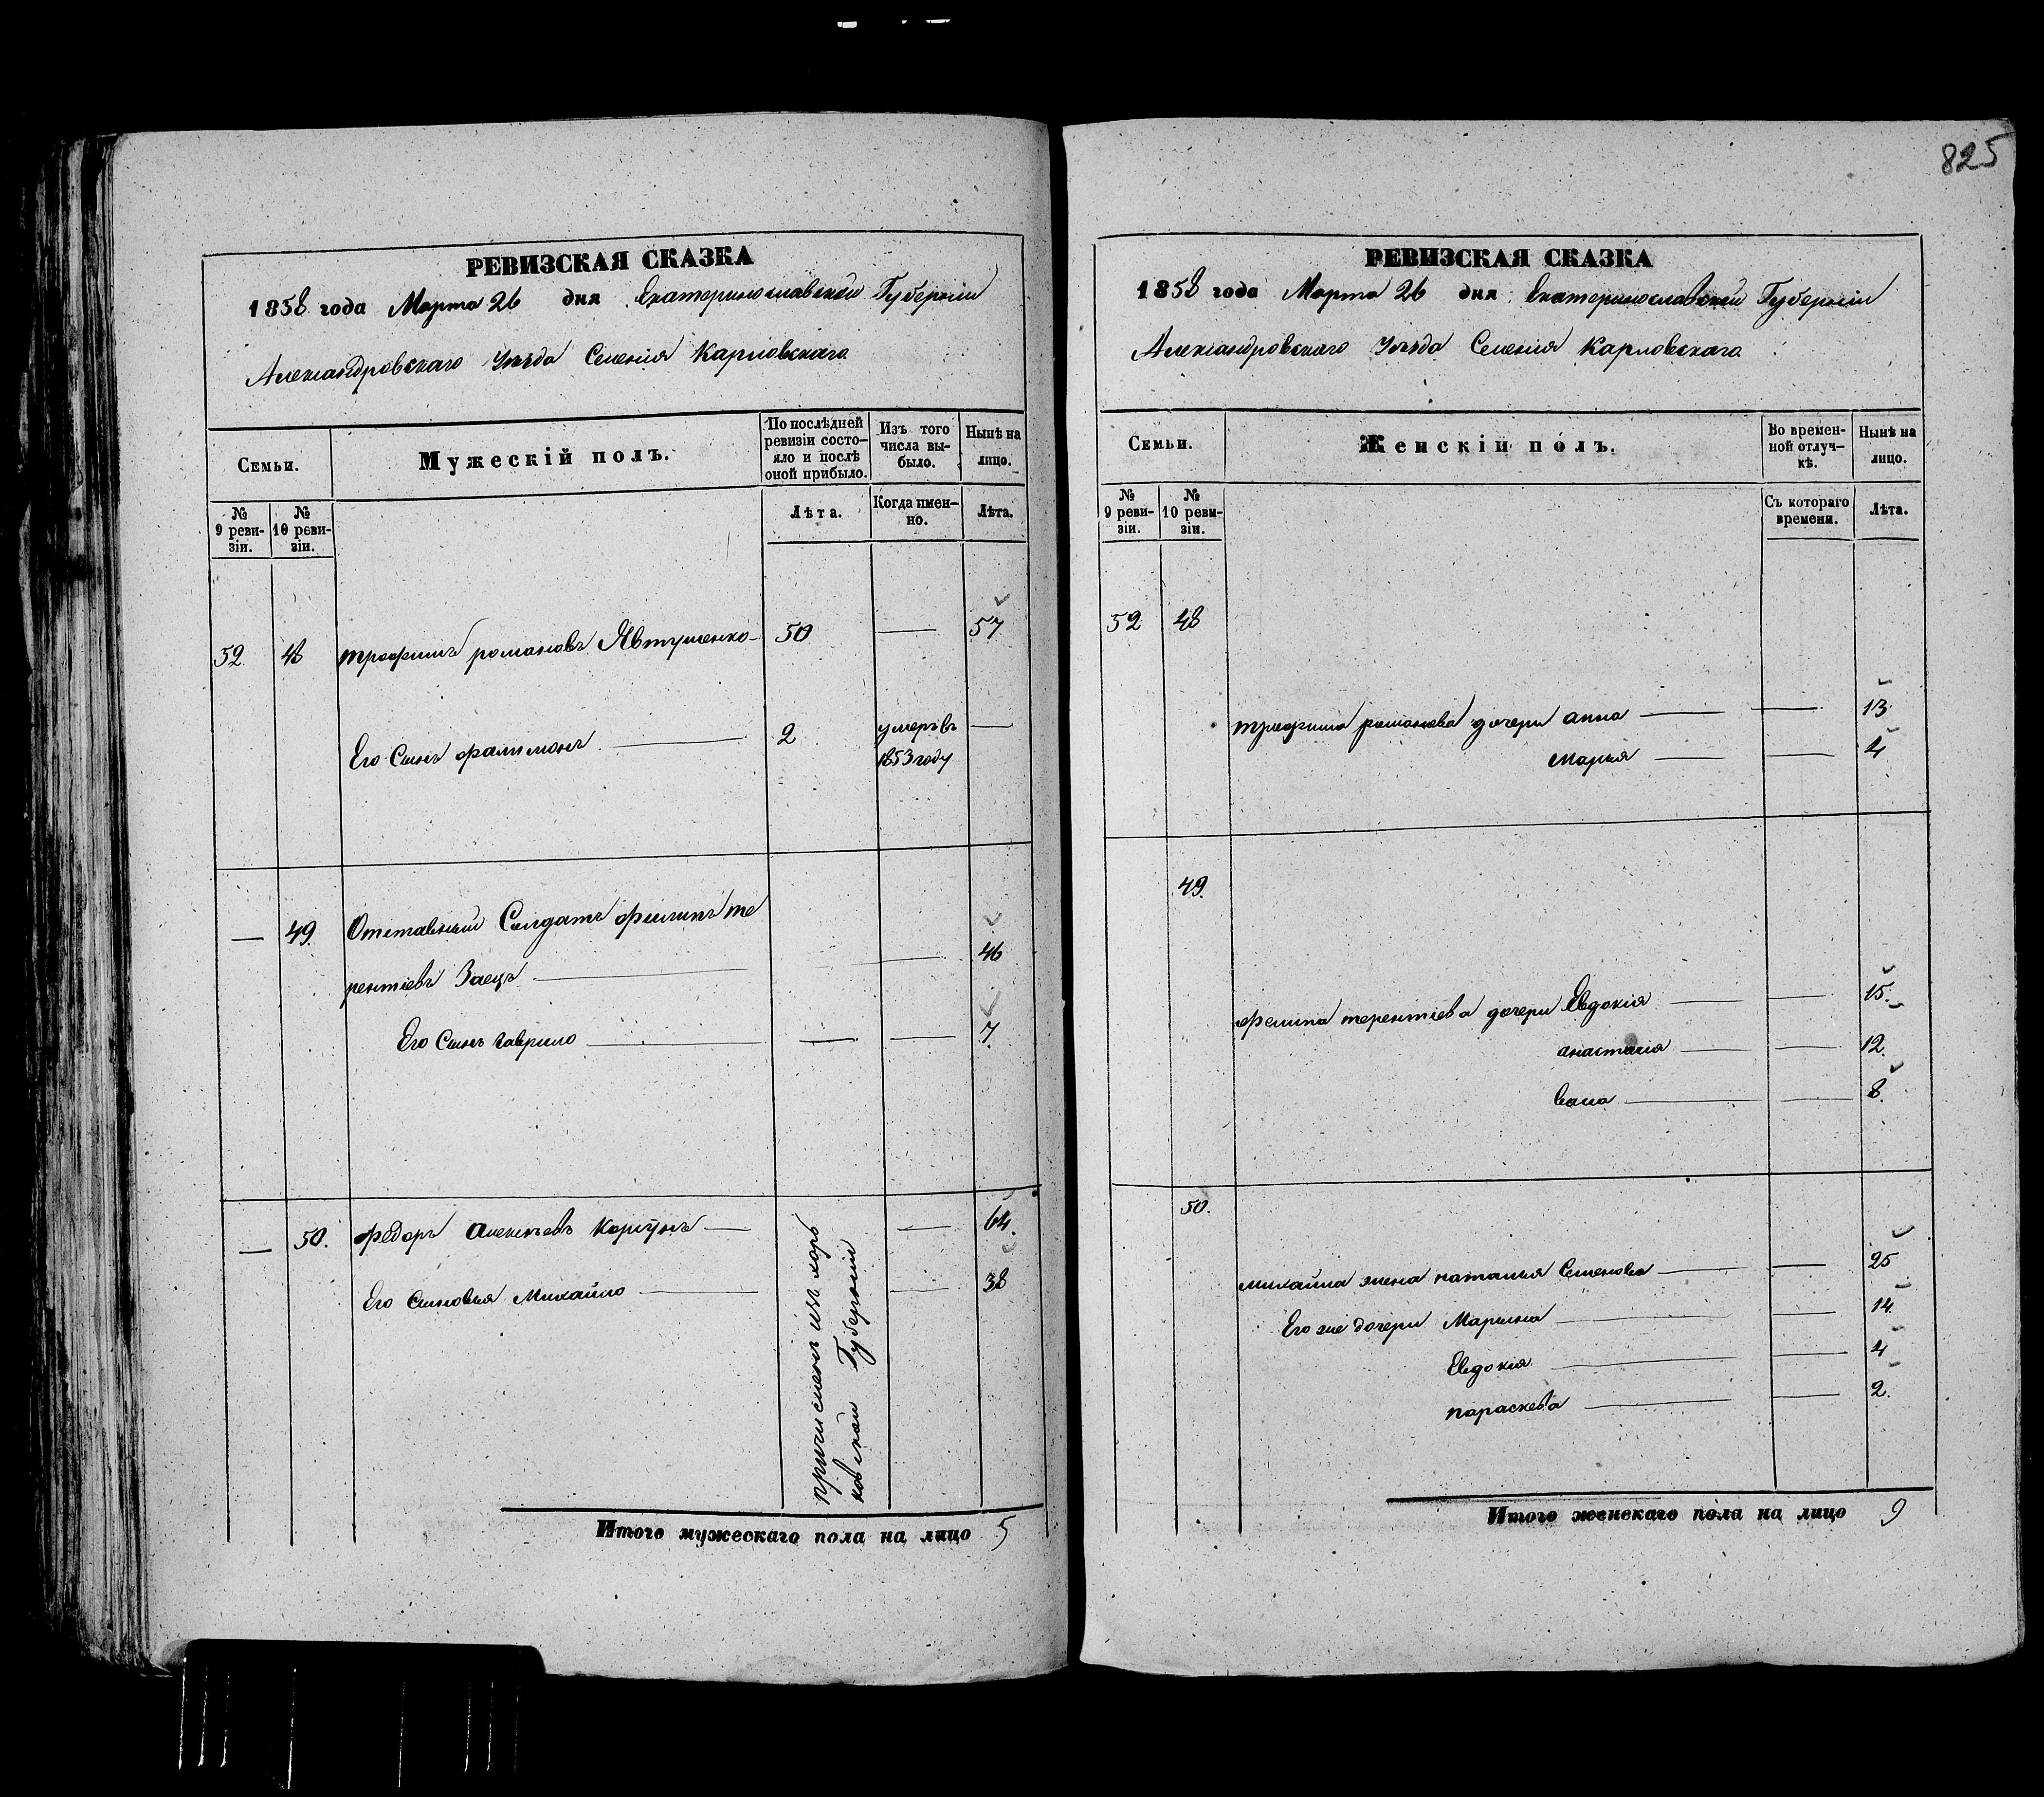 825
РЕВИЗСКАЯ СКАЗКА
1858 года Марта 26 дня Екатеринославской Губернии
Александровского Уезда Селения Карловскаго
Семьи.
Мужескій полъ.
По послѣдней ревизіи состо-
яло и послѣ оной прибыло.
Изъ того числа вы-
было.
Нынѣ на лицо.
№ 9 реви-
зіи.
№ 10 реви-
зіи.
Лѣта.
Когда имен-
но.
Лѣта.
52 48 трофимъ романовъ Явтушенко 50 — 57
Его Сынъ фалимонъ — 2 умеръ въ 1853 году —
— 49. Отставный Солдатъ филипъ те
рентіевъ Заецъ — — 46
Его Сынъ гаврило — — — 7
— 50. федоръ Алексѣевъ Коргунъ — — 64.
Его Сыновья Михайло — — 38
причисленъ изъ харь
ковской Губерніи
Итого мужескаго пола на лицо 5
РЕВИЗСКАЯ СКАЗКА
1858 года Марта 26 дня Екатеринославской Губерніи
Александровскаго Уезда Селения Карловскаго
Семьи.
Женскій полъ.
Во времен-
ной отлуч-
кѣ.
Нынѣ на лицо.
№ 9 реви-
зіи.
№ 10 реви-
зіи.
Съ котораго времени.
Лѣта.
52 48
трофима романова дочери анна — — 13
Марья — — 4
49.
филипа терентіева дочери Евдокія — — 15.
анастасія — — 12.
— — 8.
50.
михайла жена наталья Семенова — — 25
Его же дочери Марина — — 14
Евдокія — — 4
параскева — — 2.
Итого женскаго пола на лицо 9